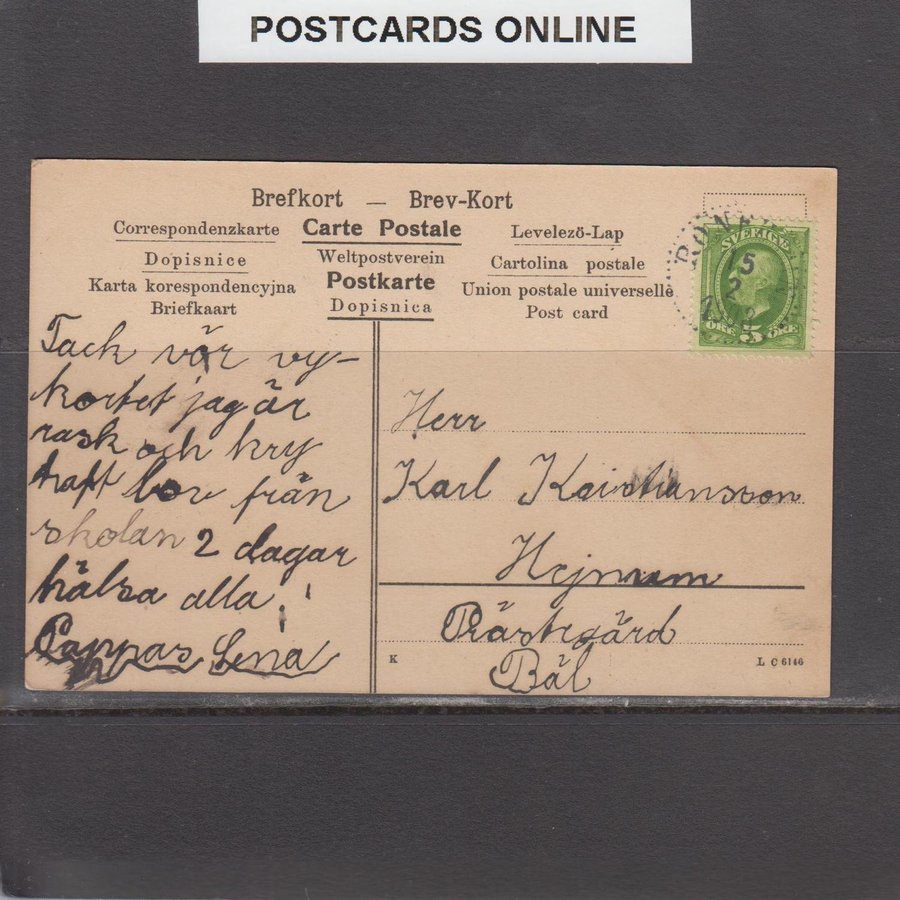 POSTCARDS ONLINE
Brefkort — Brev-Kort
Correspondenzkarte Carte Postale Levelező-Lap
Dopisnice Weltpostverein Cartolina postale
Karta korespondencyjna Postkarte Union postale universelle
Briefkaart Dopisnica Post card
SVERIGE
15
2
ÖRE 5 ÖRE
Tack vör vy-
kortet jag är
rask och kry
haft lov från
skolan 2 dagar
hälsa alla!
Pappas Lena
Herr
Karl Kristiansson
Hejnum
Prästegård
Bäl
K
L C 6146